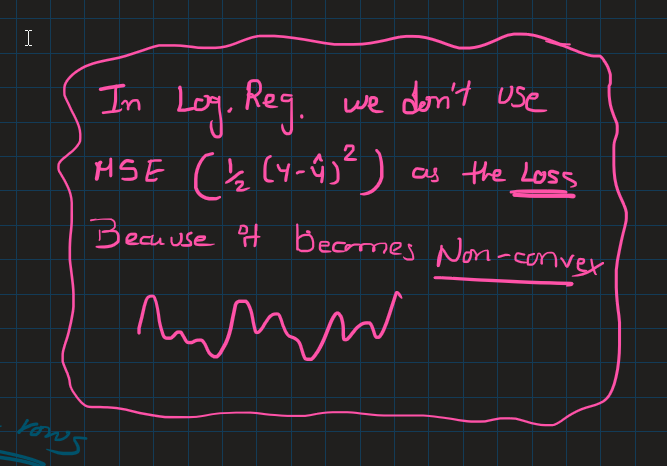 In Log. Reg. we don't use
MSE (½ (y-ŷ)²) as the Loss
Because it becomes Non-convex
rows